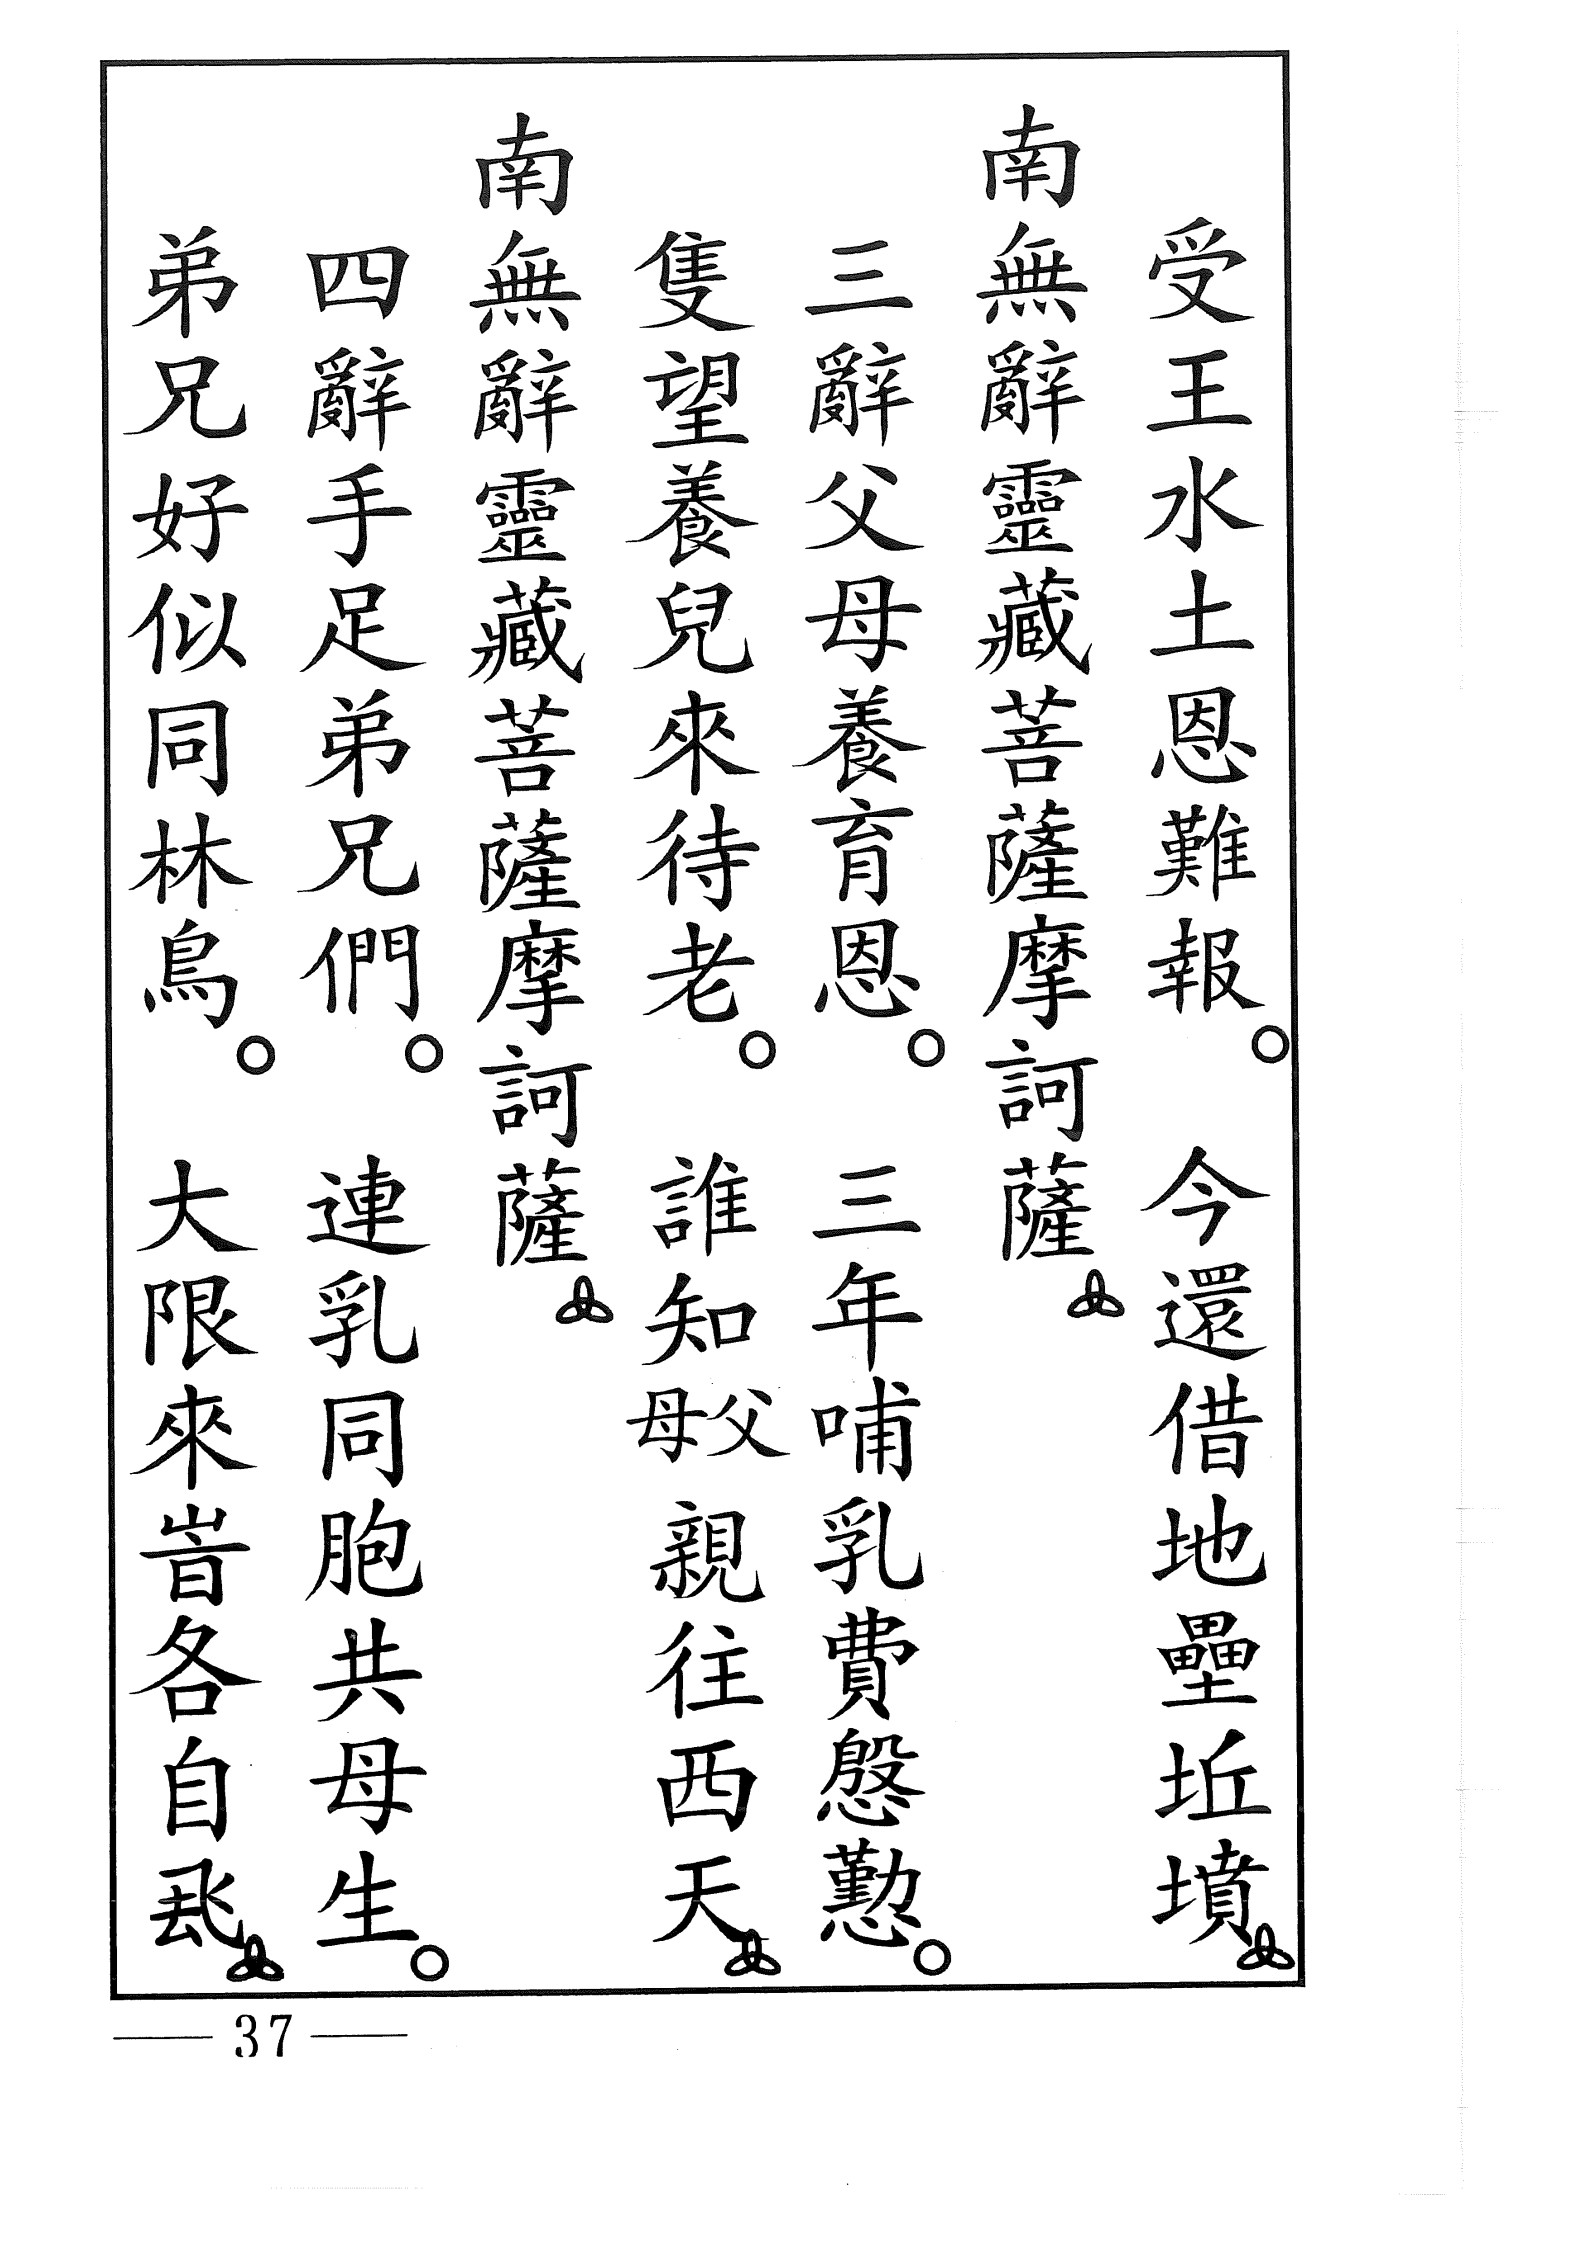 受王水土恩難報。今還借地壘坵墳
南無辭靈藏菩薩摩訶薩
三辭父母養育恩。三年哺乳費慇懃。
隻望養兒來待老。誰知父母親往西天
南無辭靈藏菩薩摩訶薩
四辭手足弟兄們。連乳同胞共母生。
弟兄好似同林鳥。大限來旹各自
37